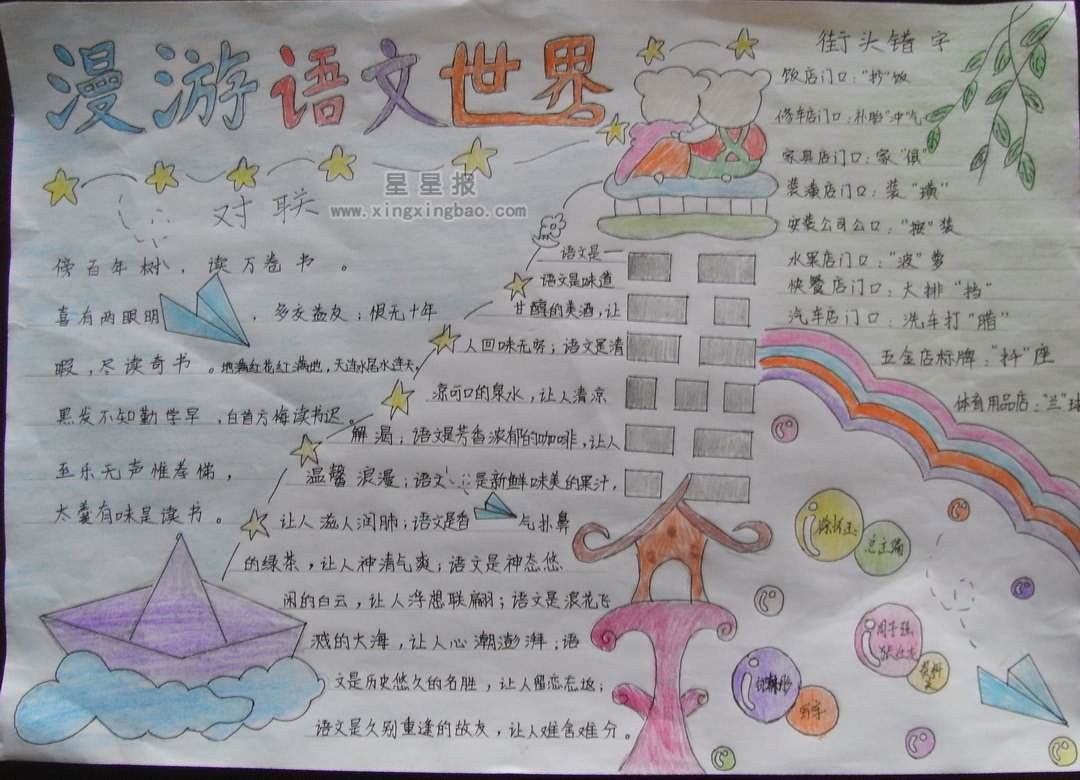 漫游语文世界
星星报
www.xingxingbao.com
对联
傍百年树，读万卷书。
喜有两眼明，多交益友；恨无十年
暇，尽读奇书。地满红花红满地，天连水尾水连天。
黑发不知勤学早，白首方悔读书迟。
至乐无声惟孝悌，
太羹有味是读书。
语文是一
语文是味道
甘醇的美酒，让
人回味无穷；语文是清
凉可口的泉水，让人清凉
解渴；语文是芳香浓郁的咖啡，让人
温馨浪漫；语文是新鲜味美的果汁，
让人滋人润肺；语文是香气扑鼻
的绿茶，让人神清气爽；语文是神态悠
闲的白云，让人浮想联翩；语文是浪花飞
溅的大海，让人心潮澎湃；语
文是历史悠久的名胜，让人留恋忘返；
语文是久别重逢的故友，让人难舍难分。
街头错字
饭店门口："抄"饭
修车店门口：补胎"冲"气
家具店门口：家"俱"
装潢店门口：装"璜"
安装公司公口："按"装
水果店门口："波"萝
快餐店门口：大排"挡"
汽车店门口：洗车打"腊"
五金店标牌："扦"座
体育用品店："兰"球
总主编